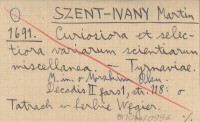 SZENT-IVANY Martin
1691. Curiosiora et selec-
tiora variarum scientiarum
miscellanea. – Tyrnaviae.
M. in. o Abrahim Olen
Decadis II pars 1, str. 118: o
Tatrach w herbie Węgier.